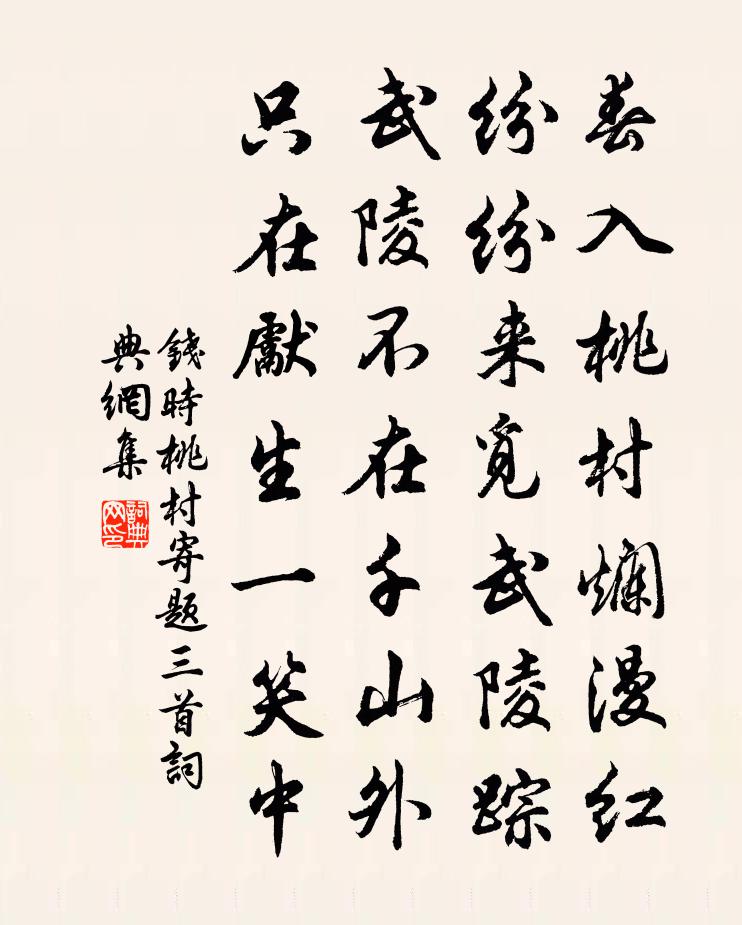 春入桃村爛漫红
纷纷来觅武陵踪
武陵不在千山外
只在獻生一笑中
錢時桃村寄题三首詞
典網集
詞典
网印